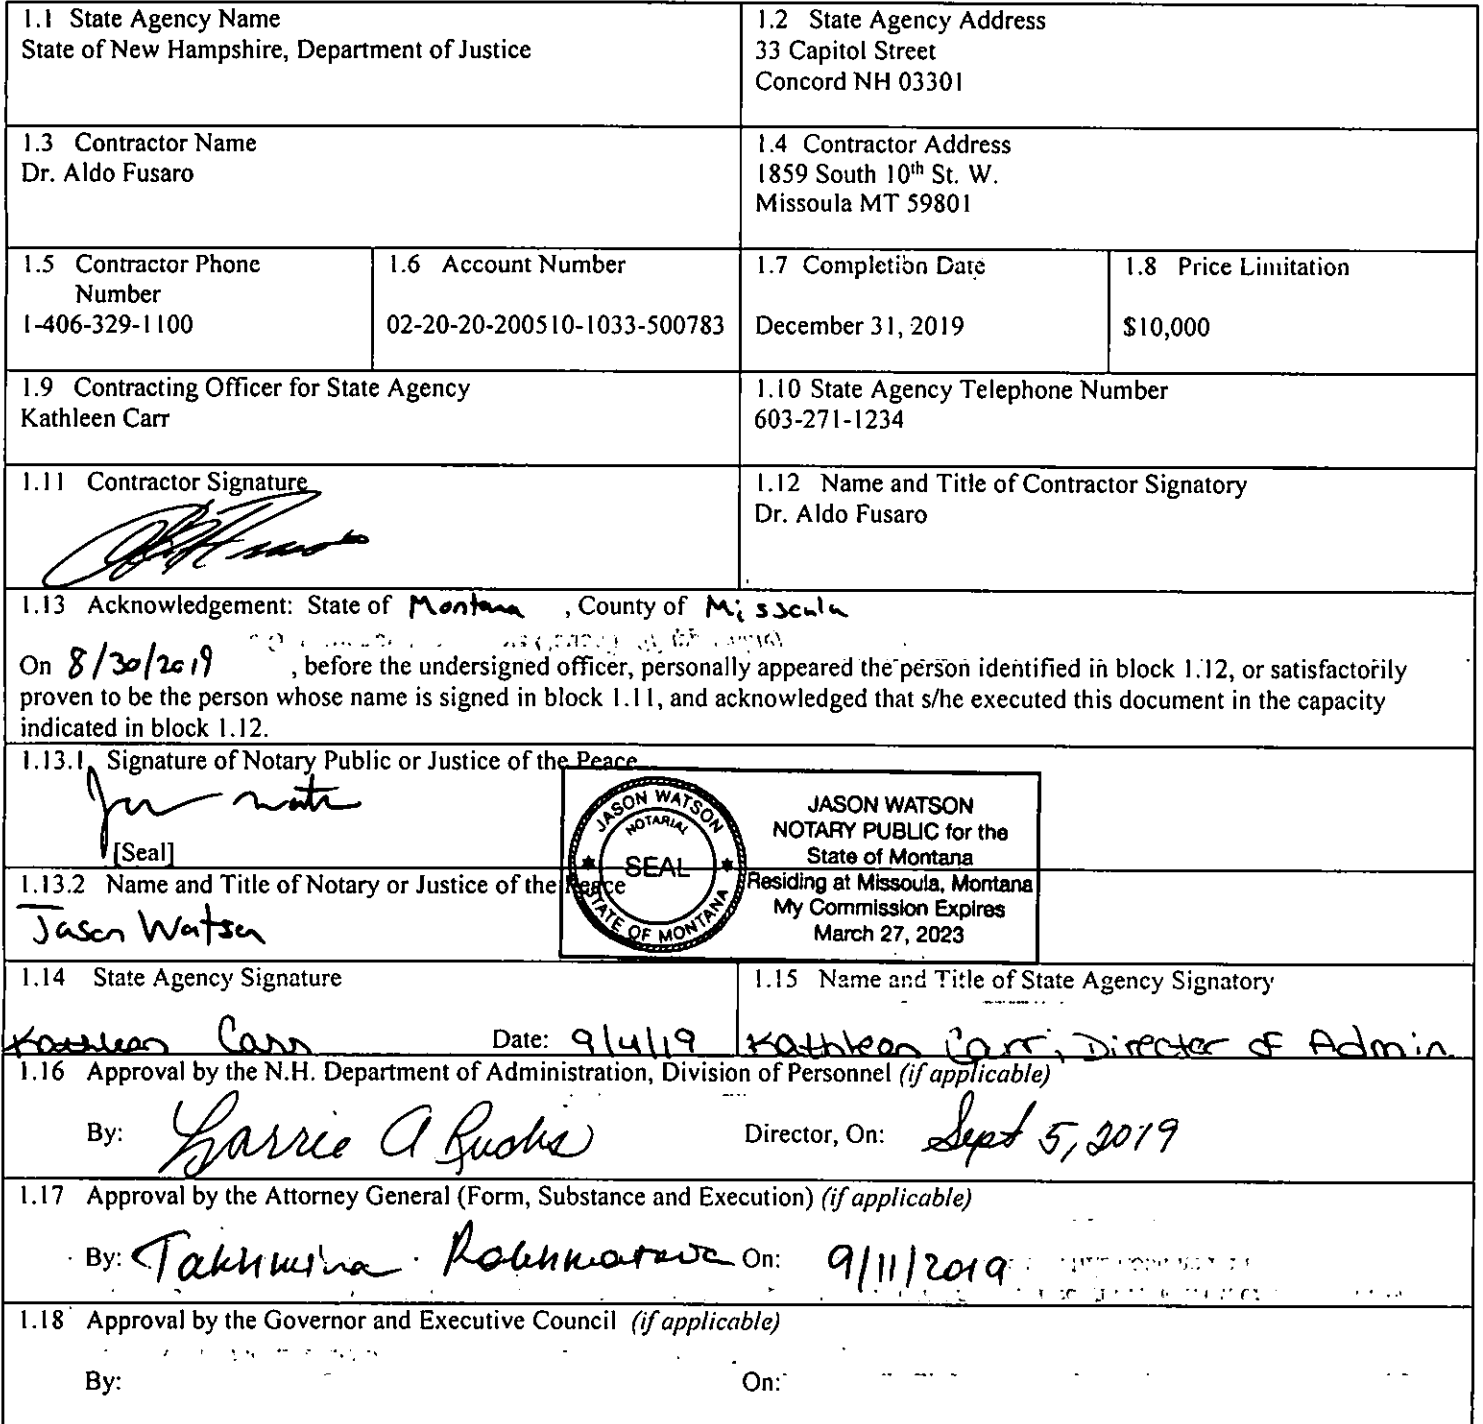 1.1 State Agency Name
State of New Hampshire, Department of Justice
1.2 State Agency Address
33 Capitol Street
Concord NH 03301
1.3 Contractor Name
Dr. Aldo Fusaro
1.4 Contractor Address
1859 South 10th St. W.
Missoula MT 59801
1.5 Contractor Phone
Number
1-406-329-1100
1.6 Account Number
02-20-20-200510-1033-500783
1.7 Completion Date
December 31, 2019
1.8 Price Limitation
$10,000
1.9 Contracting Officer for State Agency
Kathleen Carr
1.10 State Agency Telephone Number
603-271-1234
1.11 Contractor Signature
1.12 Name and Title of Contractor Signatory
Dr. Aldo Fusaro
1.13 Acknowledgement: State of Montana , County of Missoula
On 8/30/2019 , before the undersigned officer, personally appeared the person identified in block 1.12, or satisfactorily
proven to be the person whose name is signed in block 1.11, and acknowledged that s/he executed this document in the capacity
indicated in block 1.12.
1.13.1 Signature of Notary Public or Justice of the Peace
[Seal]
JASON WATSON
NOTARIAL
SEAL
STATE OF MONTANA
JASON WATSON
NOTARY PUBLIC for the
State of Montana
Residing at Missoula, Montana
My Commission Expires
March 27, 2023
1.13.2 Name and Title of Notary or Justice of the Peace
Jason Watson
1.14 State Agency Signature
Kathleen Carr Date: 9/4/19
1.15 Name and Title of State Agency Signatory
Kathleen Carr, Director of Admin
1.16 Approval by the N.H. Department of Administration, Division of Personnel (if applicable)
By: A Director, On: Sept 5, 2019
1.17 Approval by the Attorney General (Form, Substance and Execution) (if applicable)
By: Takhmina Rakhmatova On: 9/11/2019
1.18 Approval by the Governor and Executive Council (if applicable)
By: On: